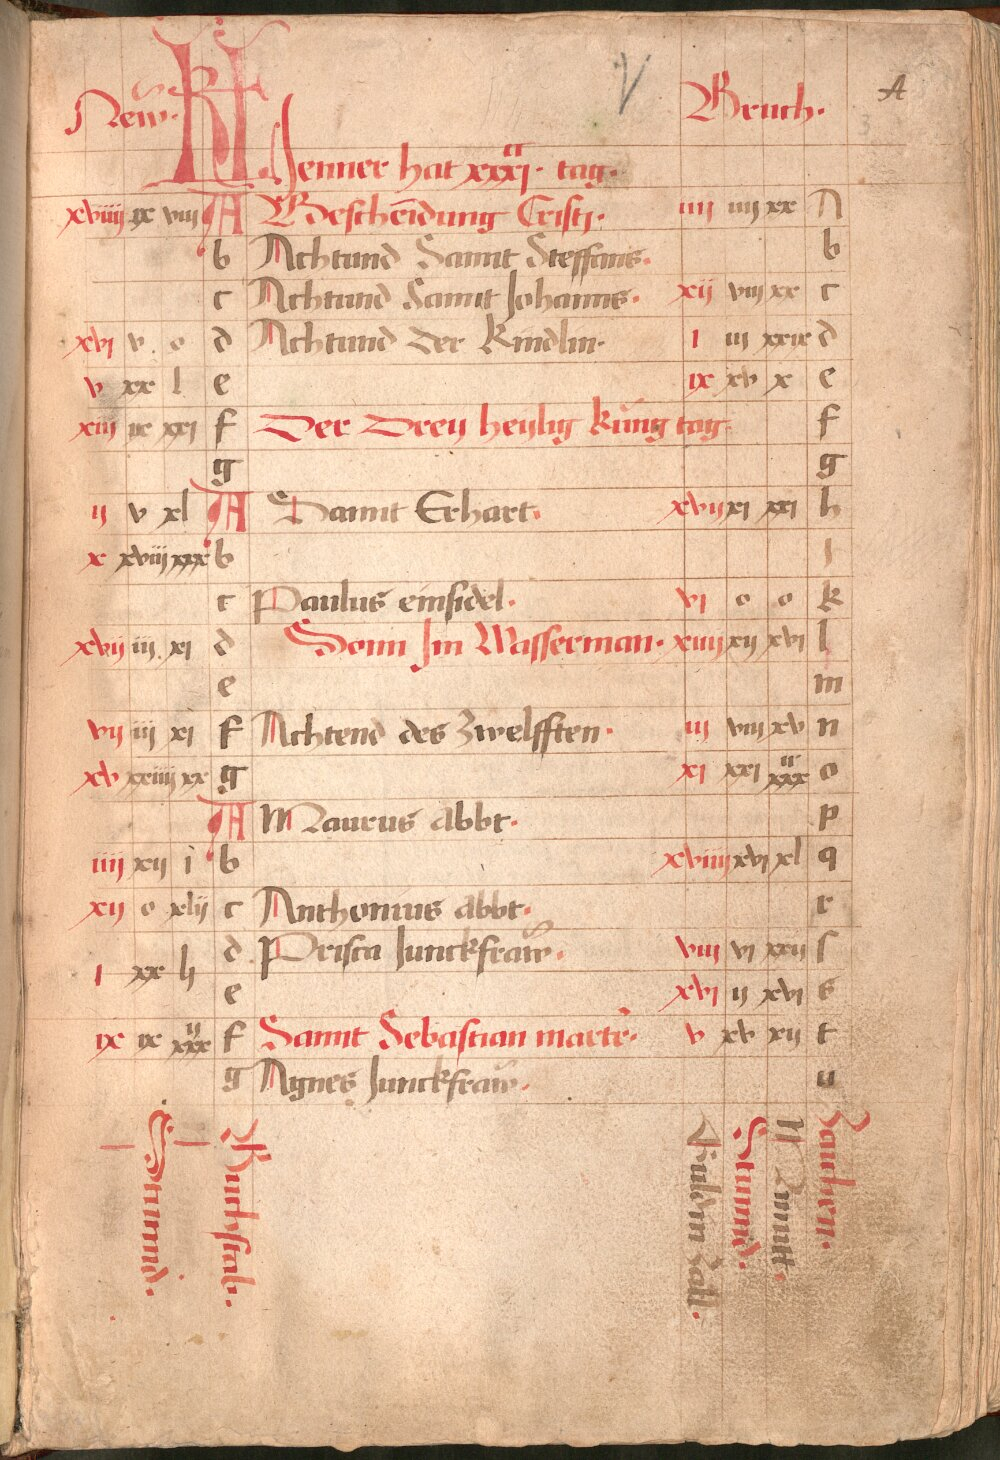 New. KL Bruch. A
Jenner hat xxxi. tag.
xviiii ix viii A Bescheidung Cristi. iiii iiii xx A
b Achtund Sannt Steffans. b
c Achtund Sannt Johanns. xii viii xx c
xvi v o d Achtund der Kindlin. i iii xxix d
v xx l e ix xv x e
xiii ix xxi f Der Dreÿ heÿlig Küng tag. f
g g
ii v xl A Sannt Erhart. xvii xi xxi h
x xviii xxx b i
c Paulus einsidel. vi o o k
xvii iii xi d Sonn Im Wasserman. xiiii xii xvi l
e m
vii iii xi f Achtend des Zwelfften. iii viii xv n
xv xxiiii xx g xi xxi xxxii o
A Maurus abbt. p
iiii xii i b xviiii xvi xl q
xii o xlii c Anthonius abbt. r
i xx li d Prisca Junckfraw. viii vi xxii ſ
e xvi ii xvi s
ix ix xxxii f Sannt Sebastian marter. v xv xii t
g Agnes Junckfraw. u
Stunnd.
Buchstab.
Guldin Zall.
Stunnd.
Minutt.
Zaichen.